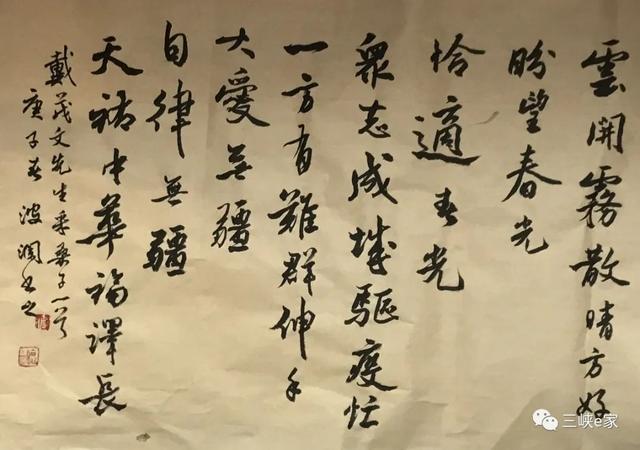 雲開霧散晴方好
盼望春光
恰適春光
衆志成城驅疫忙
一方有難群伸手
大愛无疆
自律無疆
天祐中華福澤長
戴茂文先生采桑子一首
庚子春 波 書之
三峡e家